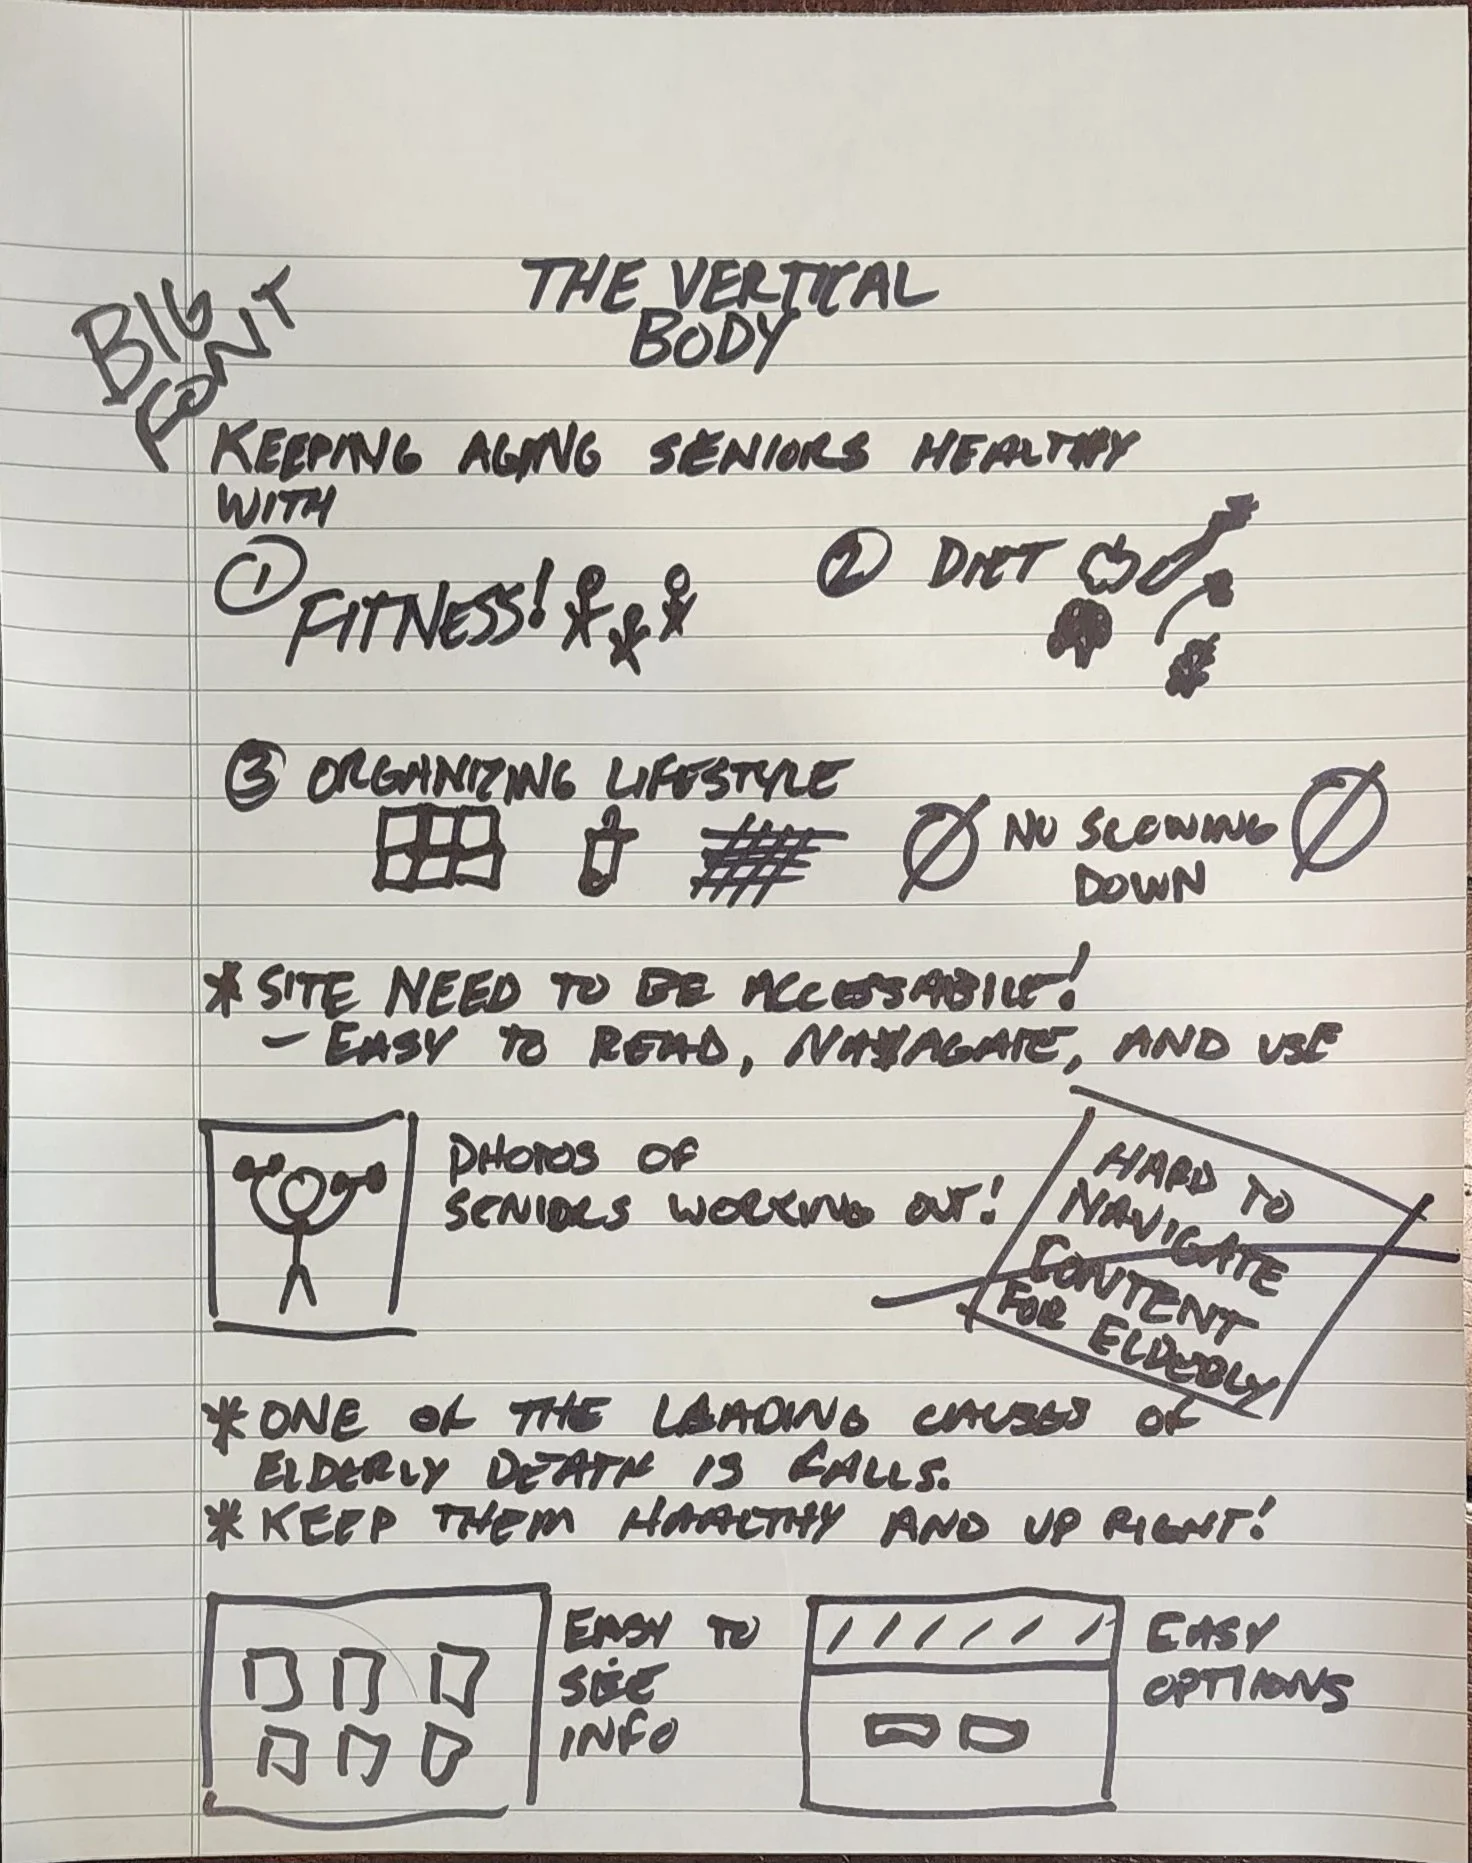 BIG
FONT
THE VERTICAL
BODY
KEEPING AGING SENIORS HEALTHY
WITH
1 FITNESS!
2 DIET
3 ORGANIZING LIFESTYLE
NO SLOWING
DOWN
* SITE NEED TO BE ACCESSABILE!
- EASY TO READ, NAVAGATE, AND USE
PHOTOS OF
SENIORS WORKING OUT!
HARD TO
NAVIGATE
CONTENT
FOR ELDERLY
* ONE OF THE LEADING CAUSES OF
ELDERLY DEATH IS FALLS.
* KEEP THEM HAALTHY AND UP RIGHT!
EASY TO
SEE
INFO
EASY
OPTIONS